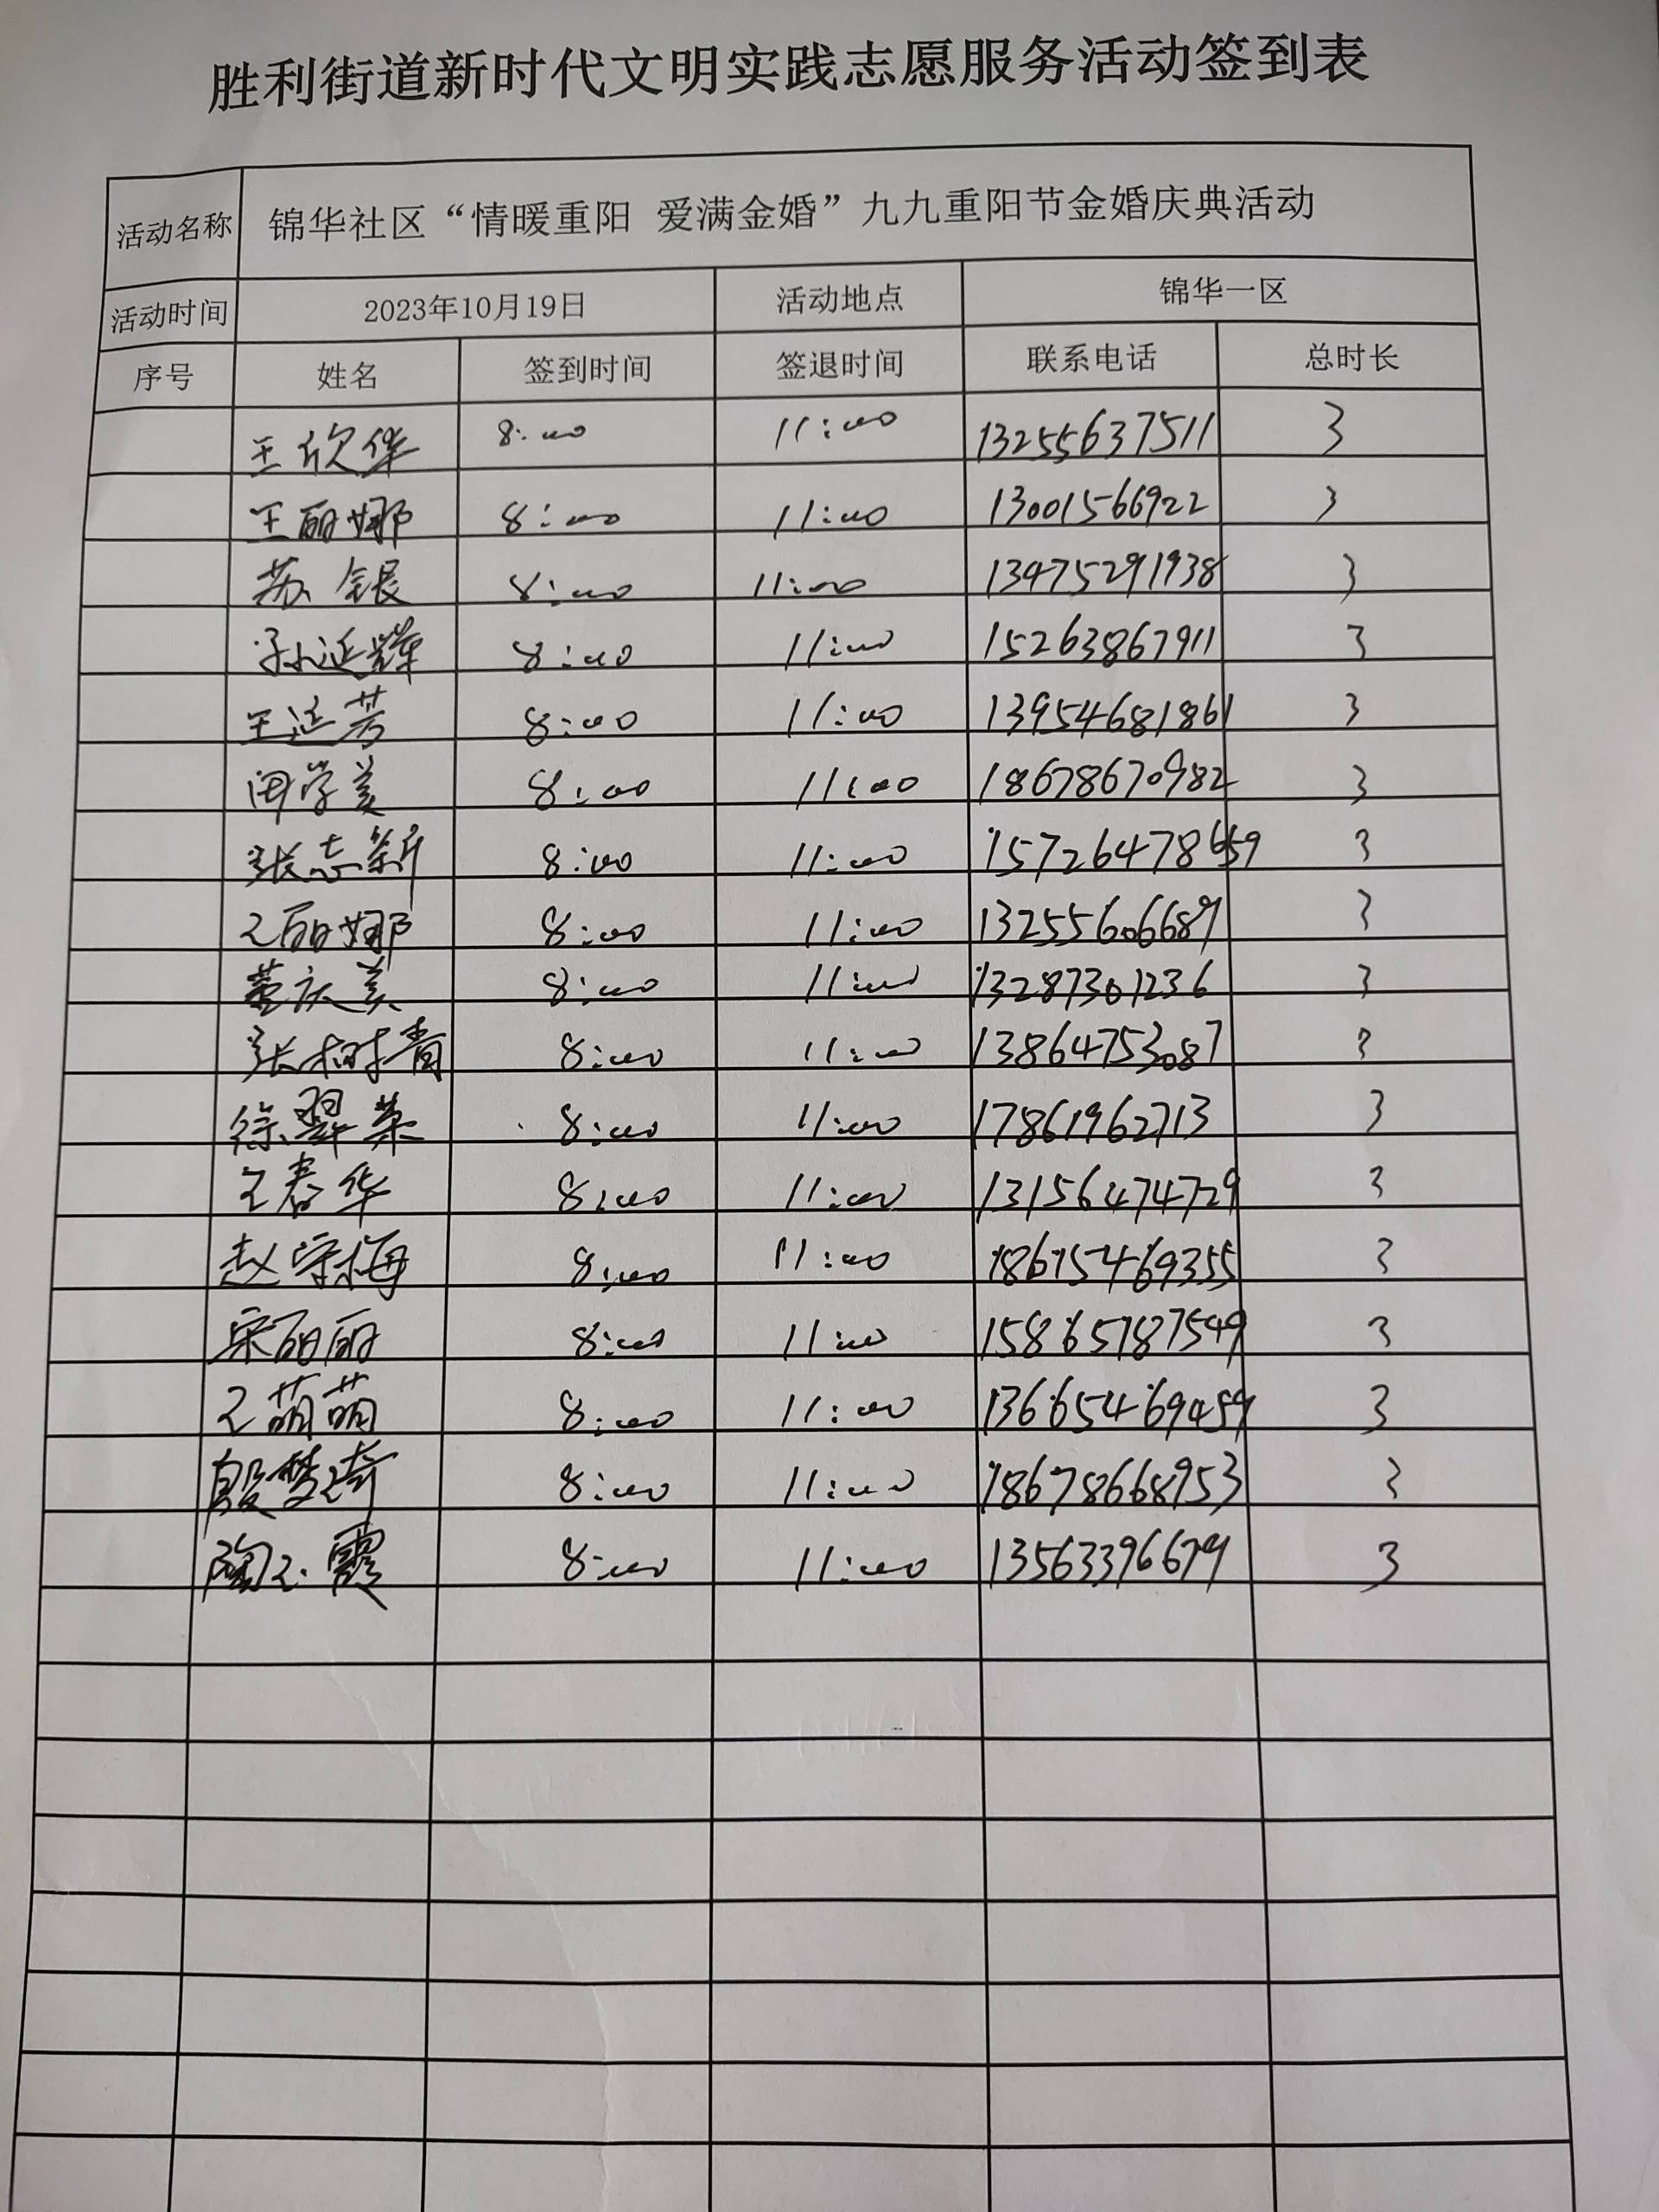 胜利街道新时代文明实践志愿服务活动签到表
活动名称 锦华社区“情暖重阳 爱满金婚”九九重阳节金婚庆典活动
活动时间 2023年10月19日 活动地点 锦华一区
序号 姓名 签到时间 签退时间 联系电话 总时长
王欣华 8:00 11:00 13255637511 3
王丽娜 8:00 11:00 13001566922 3
苏银 8:00 11:00 13475291938 3
孙延辉 8:00 11:00 15263867911 3
王延芳 8:00 11:00 13954681861 3
田学美 8:00 11:00 18678670982 3
张志新 8:00 11:00 15726478659 3
王丽娜 8:00 11:00 13255606689 3
董庆美 8:00 11:00 13287301236 3
张树青 8:00 11:00 13864753087 3
徐翠荣 8:00 11:00 17861962713 3
王春华 8:00 11:00 13156474729 3
赵守梅 8:00 11:00 18615469355 3
宋丽丽 8:00 11:00 15865787549 3
王萌萌 8:00 11:00 13665469459 3
殷梦琦 8:00 11:00 18678668953 3
陶玉霞 8:00 11:00 13563396679 3